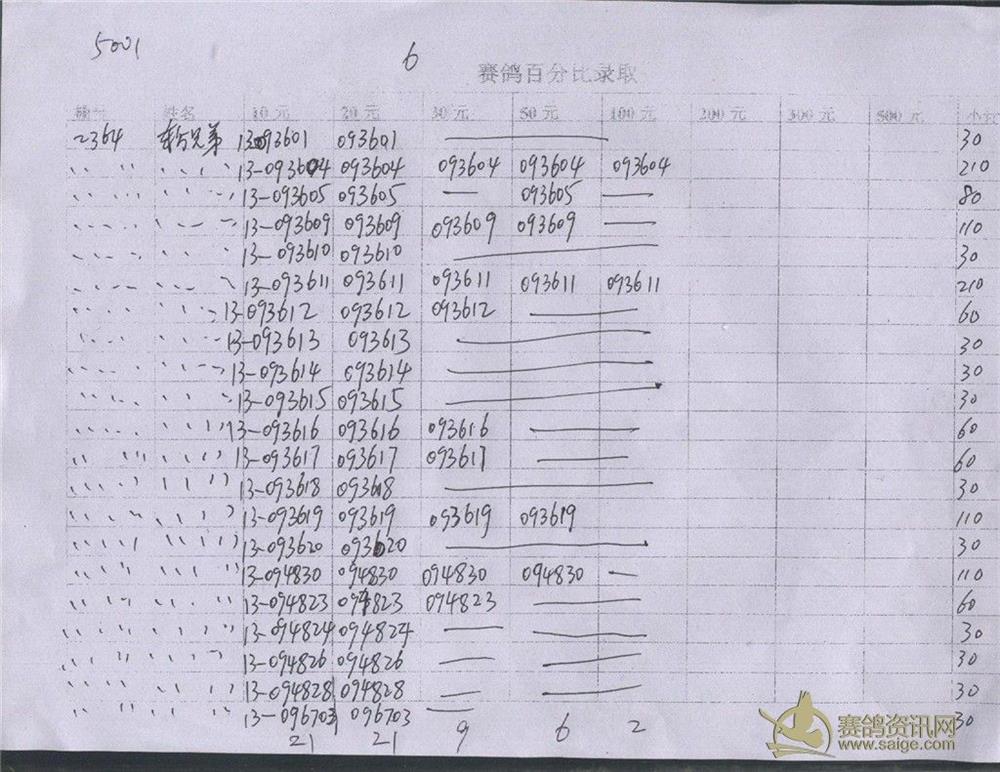 5001 6
赛鸽百分比录取
棚号 姓名 10元 20元 30元 50元 100元 200元 300元 500元 小计
2364 兄弟 13-093601 093601 — 30
〃 〃 13-093604 093604 093604 093604 093604 210
〃 〃 13-093605 093605 — 093605 — 80
〃 〃 13-093609 093609 093609 093609 — 110
〃 〃 13-093610 093610 — 30
〃 〃 13-093611 093611 093611 093611 093611 210
〃 〃 13-093612 093612 093612 — 60
〃 〃 13-093613 093613 — 30
〃 〃 13-093614 093614 — 30
〃 〃 13-093615 093615 — 30
〃 〃 13-093616 093616 093616 — 60
〃 〃 13-093617 093617 093617 — 60
〃 〃 13-093618 093618 — 30
〃 〃 13-093619 093619 093619 093619 110
〃 〃 13-093620 093620 — 30
〃 〃 13-094830 094830 094830 094830 — 110
〃 〃 13-094823 094823 094823 — 60
〃 〃 13-094824 094824 — — 30
〃 〃 13-094826 094826 — — 30
〃 〃 13-094828 094828 — — 30
〃 〃 13-096703 096703 — 30
21 21 9 6 2
赛鸽资讯网
www.saige.com